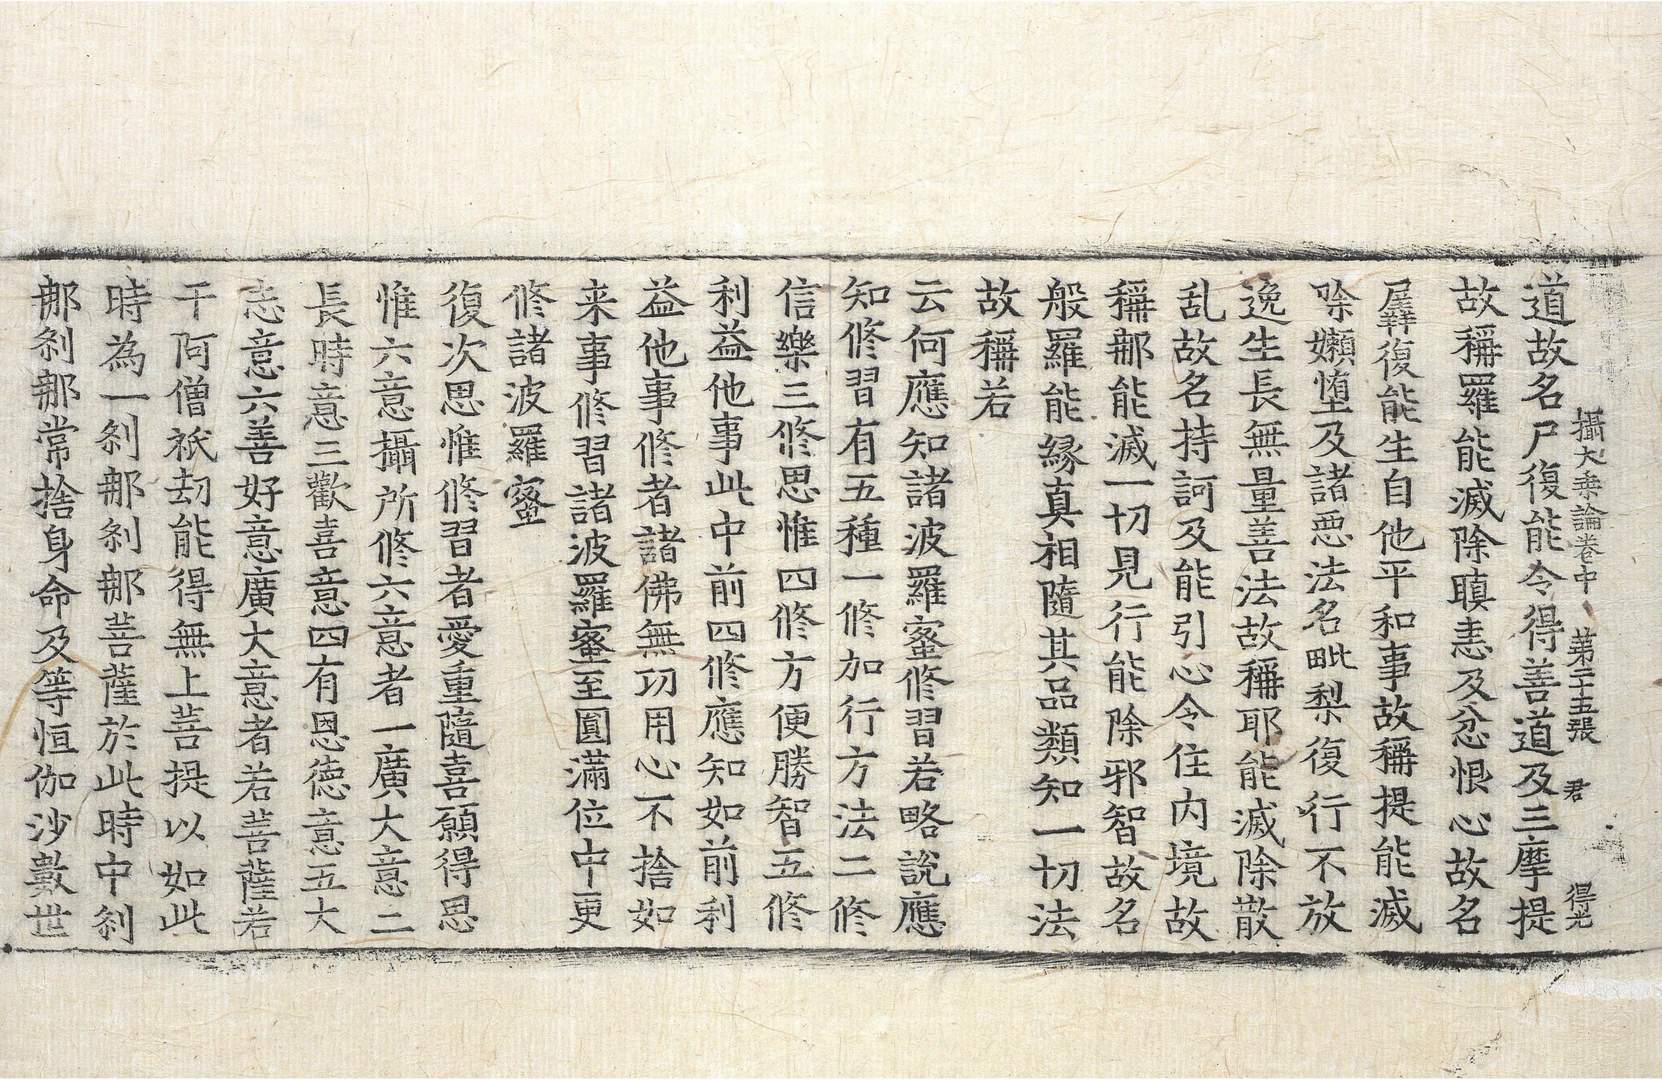 攝大乘論卷中 第二十五張 君 得光
道故名尸復能令得善道及三摩提
故稱羅能滅除瞋恚及忿恨心故名
羼復能生自他平和事故稱提能滅
除嬾墮及諸惡法名毗梨復行不放
逸生長無量善法故稱耶能滅除散
乱故名持訶及能引心令住内境故
稱那能滅一切見行能除邪智故名
般羅能緣真相隨其品類知一切法
故稱若
云何應知諸波羅蜜修習若略說應
知修習有五種一修加行方法二修
信樂三修思惟四修方便勝智五修
利益他事此中前四修應知如前利
益他事修者諸佛無功用心不捨如
来事修習諸波羅蜜至圓滿位中更
修諸波羅蜜
復次思惟修習者愛重隨喜願得思
惟六意攝所修六意者一廣大意二
長時意三歡喜意四有恩德意五大
志意六善好意廣大意者若菩薩若
干阿僧祇劫能得無上菩提以如此
時為一剎那剎那菩薩於此時中剎
那剎那常捨身命及等恒伽沙數世